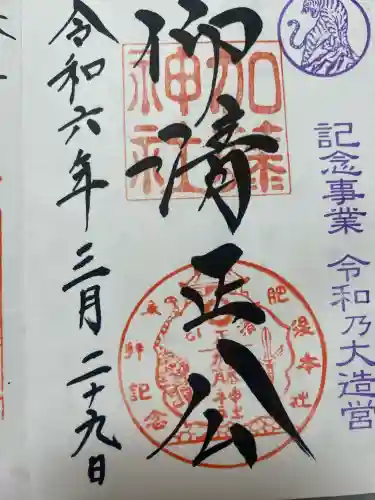 記念事業 令和乃大造営
仰清正公
加藤神社
肥後本社
参拝記念
加藤神社
令和六年 三月 二十九日